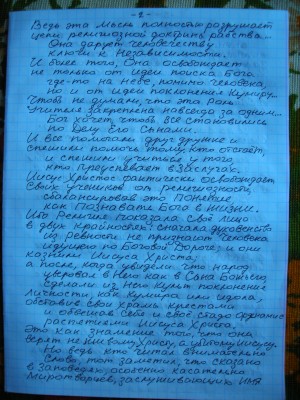 - 2 -
Ведь эта Мысль полностью разрушает
цепи религиозной доктрины рабства...
Она дарует Человечеству
ключи к Независимости.
И более того, Она освобождает
не только от идеи поиска Бога
где-то на небе, помимо Человека,
но и от идеи поклонения Кумиру...
Чтоб не думали, что эта Роль
Учителя закреплена навсегда за одним...
Бог хочет чтобы все становились
по Делу Его Сынами.
И все помогали друг дружке и
спешили помочь тому, кто отстаёт,
и спешили учиться у того,
кто преуспевает в Заслугах.
Иисус Христос фактически освобождает
Своих учеников от религиозности,
сбалансировав это Понятие,
как Познавать Бога в жизни.
Ибо Религия показала своё лицо
в двух крайностях: сначала духовенство
из Ревности не признают Человека
идущего по Божьей Дороге, и они
казнили Иисуса Христа,
а после, когда увидели, что народ
уверовал в Него как в Сына Божьего,
сделали из Него культ поклонение
личности, как кумира или идола,
обставив свои храмы крестами
и обвешав себя и своё стадо
распятием Иисуса Христа,
Это как знамение того, что они
верят не живому Христу, а
Но ведь кто читал внимательно
Слово, тот заметил, что сказано
в Заповедях, особенно касательно
Миротворцев, заслуживающих